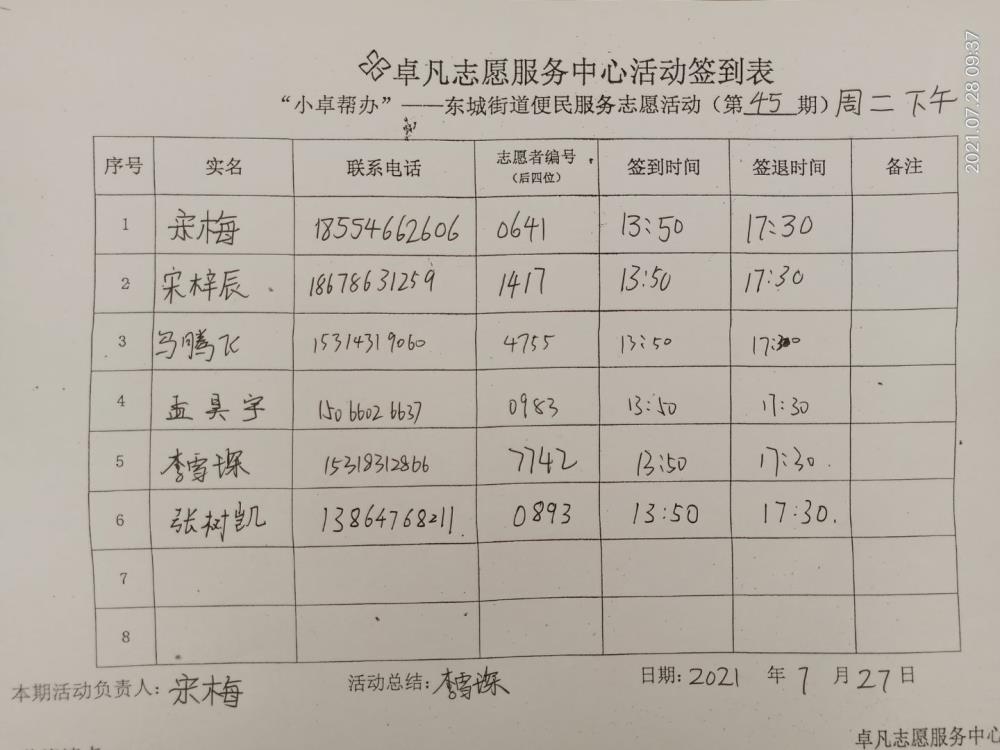 2021.07.28 09:37
卓凡志愿服务中心活动签到表
“小卓帮办”——东城街道便民服务志愿活动（第45期）周二下午
序号 实名 联系电话 志愿者编号（后四位） 签到时间 签退时间 备注
1 宋梅 18554662606 0641 13:50 17:30
2 宋梓辰 18678631259 1417 13:50 17:30
3 马腾飞 15314319060 4755 13:50 17:30
4 孟具宇 15066026637 0983 13:50 17:30
5 李雪琛 15318312866 7742 13:50 17:30.
6 张树凯 13864768211 0893 13:50 17:30.
7
8
本期活动负责人：宋梅 活动总结：李雪琛 日期：2021 年 7 月 27 日
卓凡志愿服务中心